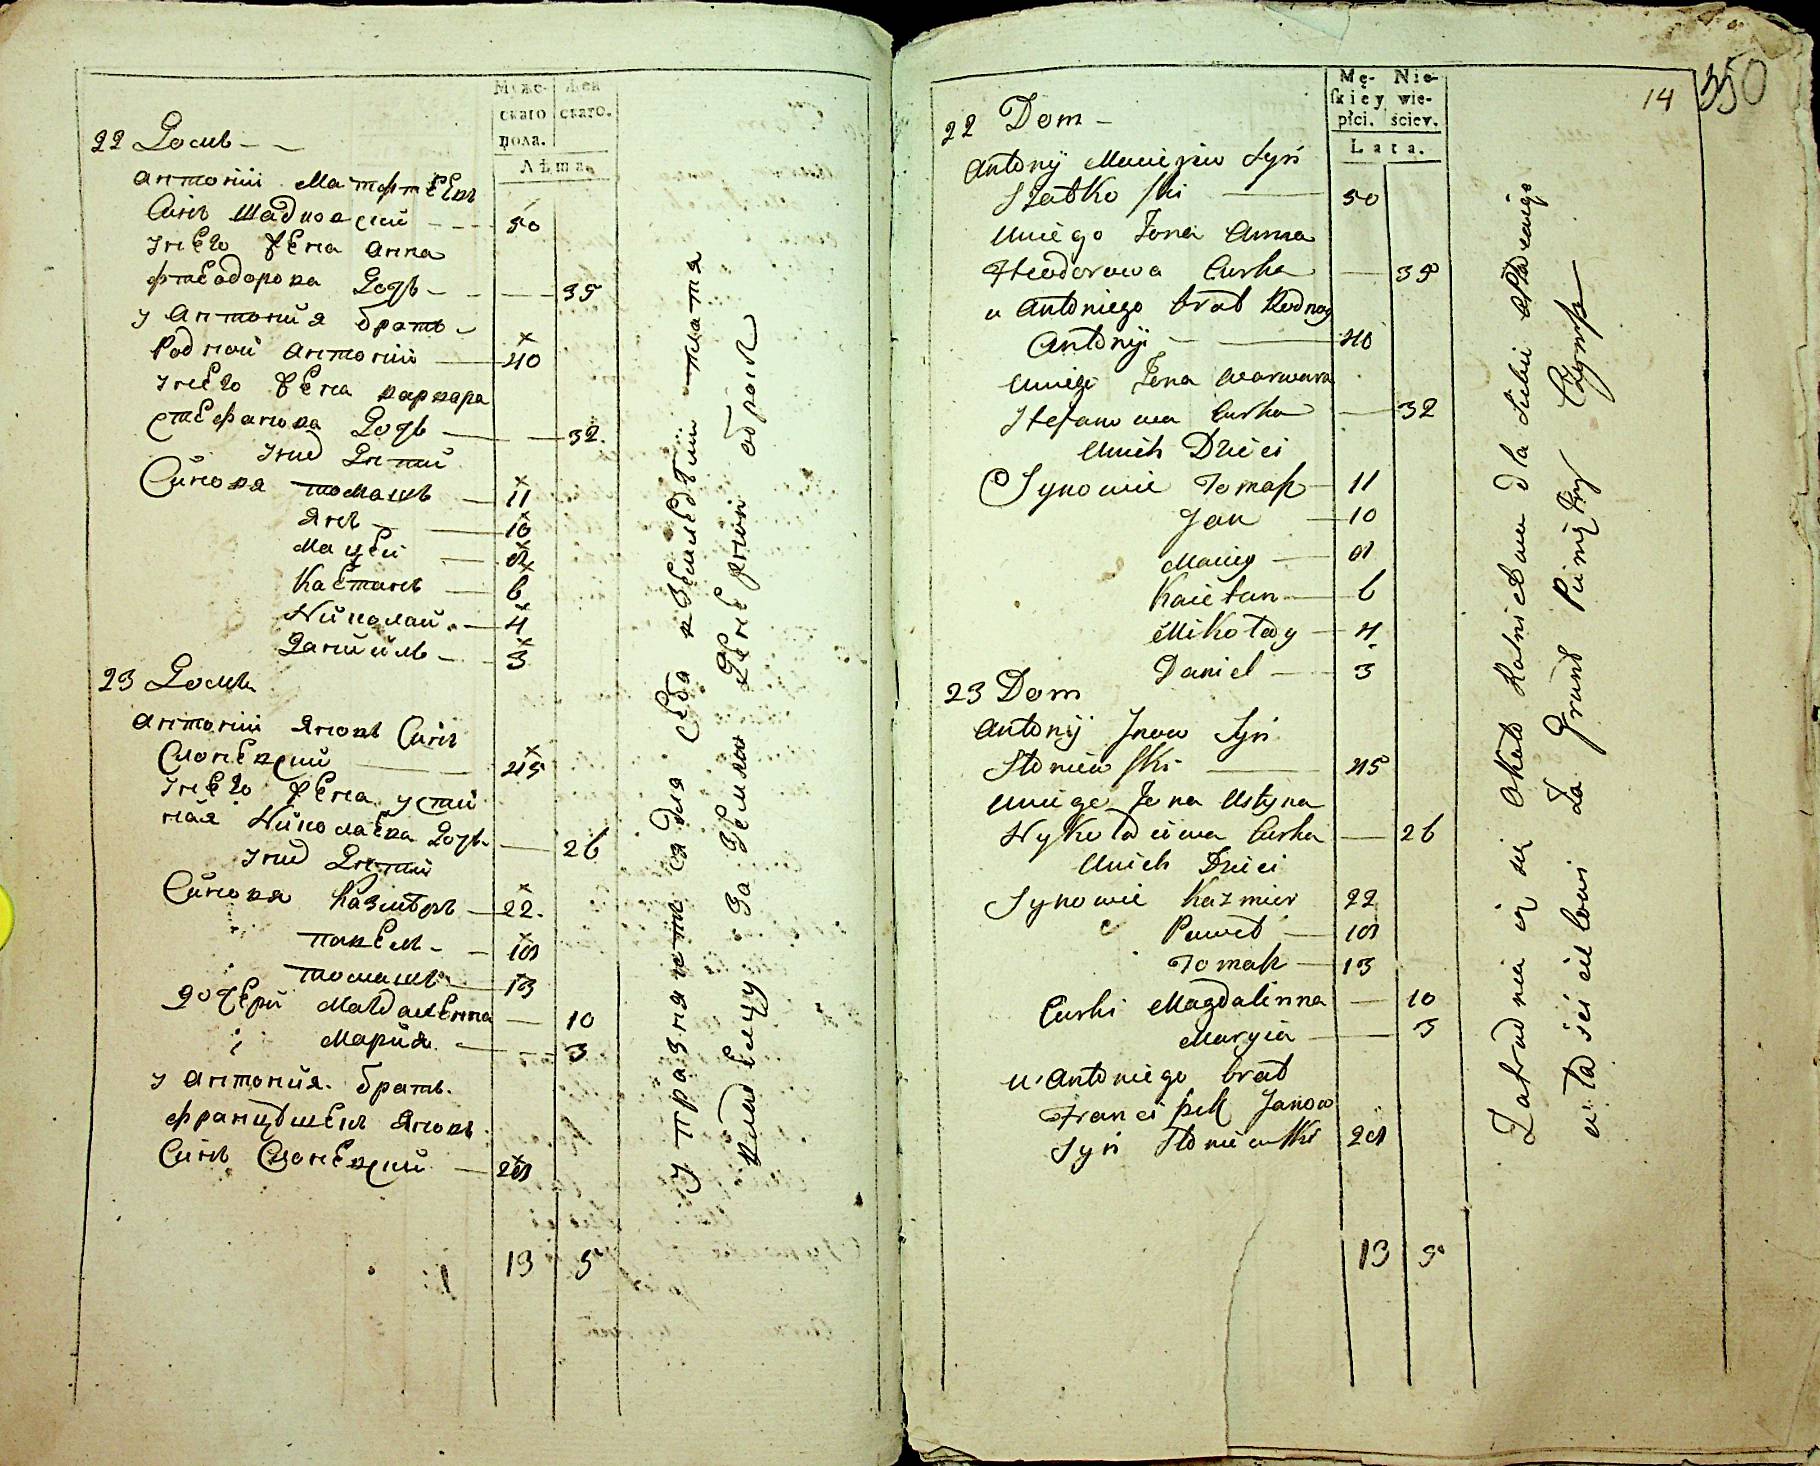 Муже-
скаго
пола.
Жен
скаго.
Лѣта.
22 Домъ
Антоній Матфѣевъ
Синъ Шадковскій 50
Унего Жена Анна
Фтеодорова Дочь 35
У Антонія братъ
Родной Антоній 40
Унего Жена Варвара
Стефанова Дочь 32.
Уних Дѣтій
Синовя Томашъ 11
Янъ 10
Мацей 8
Каетанъ 6
Николай 4
Даніилъ 3
23 Домъ
Антоній Яновъ Синъ
Слоневскій 45
Унего Жена Усти
ная Николаева Дочь 26
Уних Дѣтій
Синовя Казимѣръ 22.
Павелъ 18
Томашъ 13
Дочери Магдаленна 10
и Марія 3
У Антонія братъ
Францѣшекъ Яновъ
Синъ Слоневскій 28
13 5
Упражняютъ ся для себа кземледѣлии платя
владелцу за землю Денежной оброкъ
14 350
Mę-
skiey
płci.
Nie-
wie-
ściey.
Lata.
22 Dom
Antonij Macieyiw Syń
Szatko ski 50
Uniego Żona Anna
Fteodorowa Curka 35
u Antoniego brat Rodnoy
Antonij 40
Uniego Żona Warwara
Stefanowa Curka 32
Unich Dzieci
Synowie Tomasz 11
Jan 10
Maciey 8
Kaietan 6
Mikołay 4
Daniel 3
23 Dom
Antonij Janow Syń
Słoniew ski 45
Uniego Żona Ustyna
Nykołaiewa Curka 26
Unich Dzieci
Synowie Kazmier 22
Paweł 18
Tomasz 13
Curki Magdalinna 10
Maryia 3
u Antoniego brat
Franciszek Janow
Syń Słoniewski 28
13 5
Zatrudnia ią się około Rolnictwa dla siebie opłacaiąc
właścicielowi za Grunt Pieniężny Czynsz